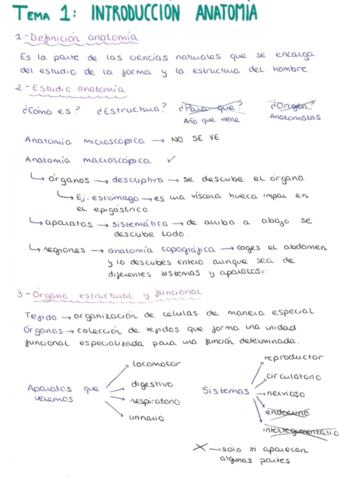 TEMA 1: INTRODUCCION ANATOMÍA
1-Definición anatomía
Es la parte de las ciencias naturales que se encarga
del estudio de la forma y la estructura del hombre.
2-Estudio anatomía
¿Cómo es? ¿Estructura? ¿Para que? ¿Origen?
Año que viene Anatomistas
Anatomía microscópica → NO SE VE
Anatomía macroscópica ✓
↳ órganos → descriptiva → se describe el órgano.
↳ Ej. estomago → es una víscera hueca impar en
el epigástrico.
↳ aparatos → sistemática → de arriba a abajo se
descube todo.
↳ regiones → anatomía topográfica → coges el abdomen
y lo describes entero aunque sea de
diferentes sistemas y aparatos.
3-Órgano estructural y funcional
Tejido → organización de células de manera especial
Órganos → colección de tejidos que forma una unidad
funcional especializada para una función determinada.
Aparatos que veremos
locomotor
digestivo
respiratorio
urinario
Sistemas
reproductor
circulatorio
nervioso
endocrino
intertegumentario
X → solo si aparecen
algunas partes